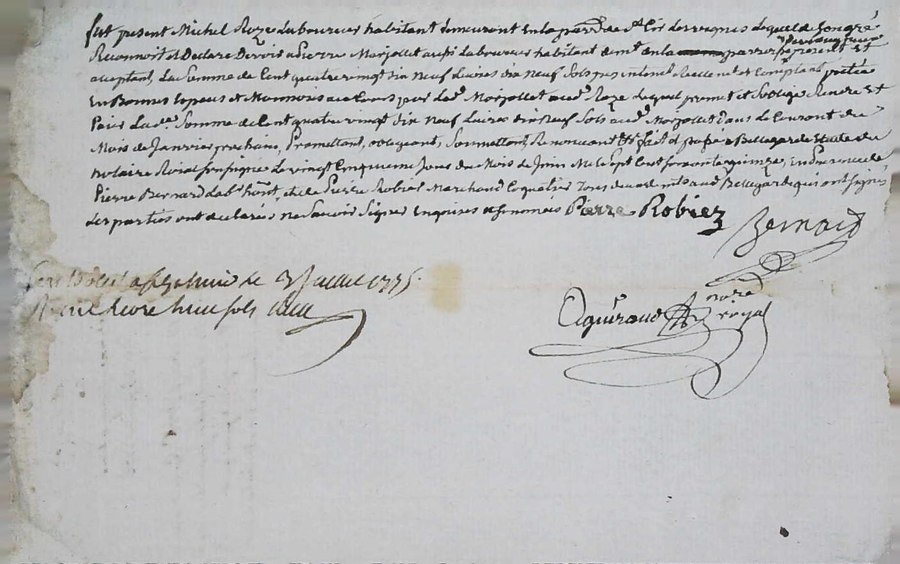 fut present Michel Roze Laboureur habitant demeurant en la parr de St Cir des vegnes lequel de son gré
Reconnoit et Declare Devoir a Pierre Morjollet aussi Laboureur habitant demt en la parroisse present Et
acceptant, La Somme de Cent quatre vingt dix Neuf Livres dix Neuf Sols Reellemt et Comptant
En Bonnes Especes et Monnois au Cours par Led Morjollet aud Roze Lequel promet et S'oblige Rendre Et
Paier La de Somme de Cent quatre vingt dix Neuf Livres dix Neuf Sols aud Morjollet dans le Courant du
Mois de Janvier prochain, Promettant, obligeant, Soumettant, Renoncant &a fait et passé a Bellegarde Etude du
Notaire Roial soussigné Le vingt Cinquieme Jour du Mois de Juin Mil Sept Cent soixante quinze, En Presence de
Pierre Bernard et de Pierre Robier Marchand Tous deux dmts aud Bellegarde qui ont signés
Les parties ont declarés ne Savoir Signer Enquises et sommées Pierre Robier
Bernard
a le 3 Juillet 1775
livre huit sols
notre
royal